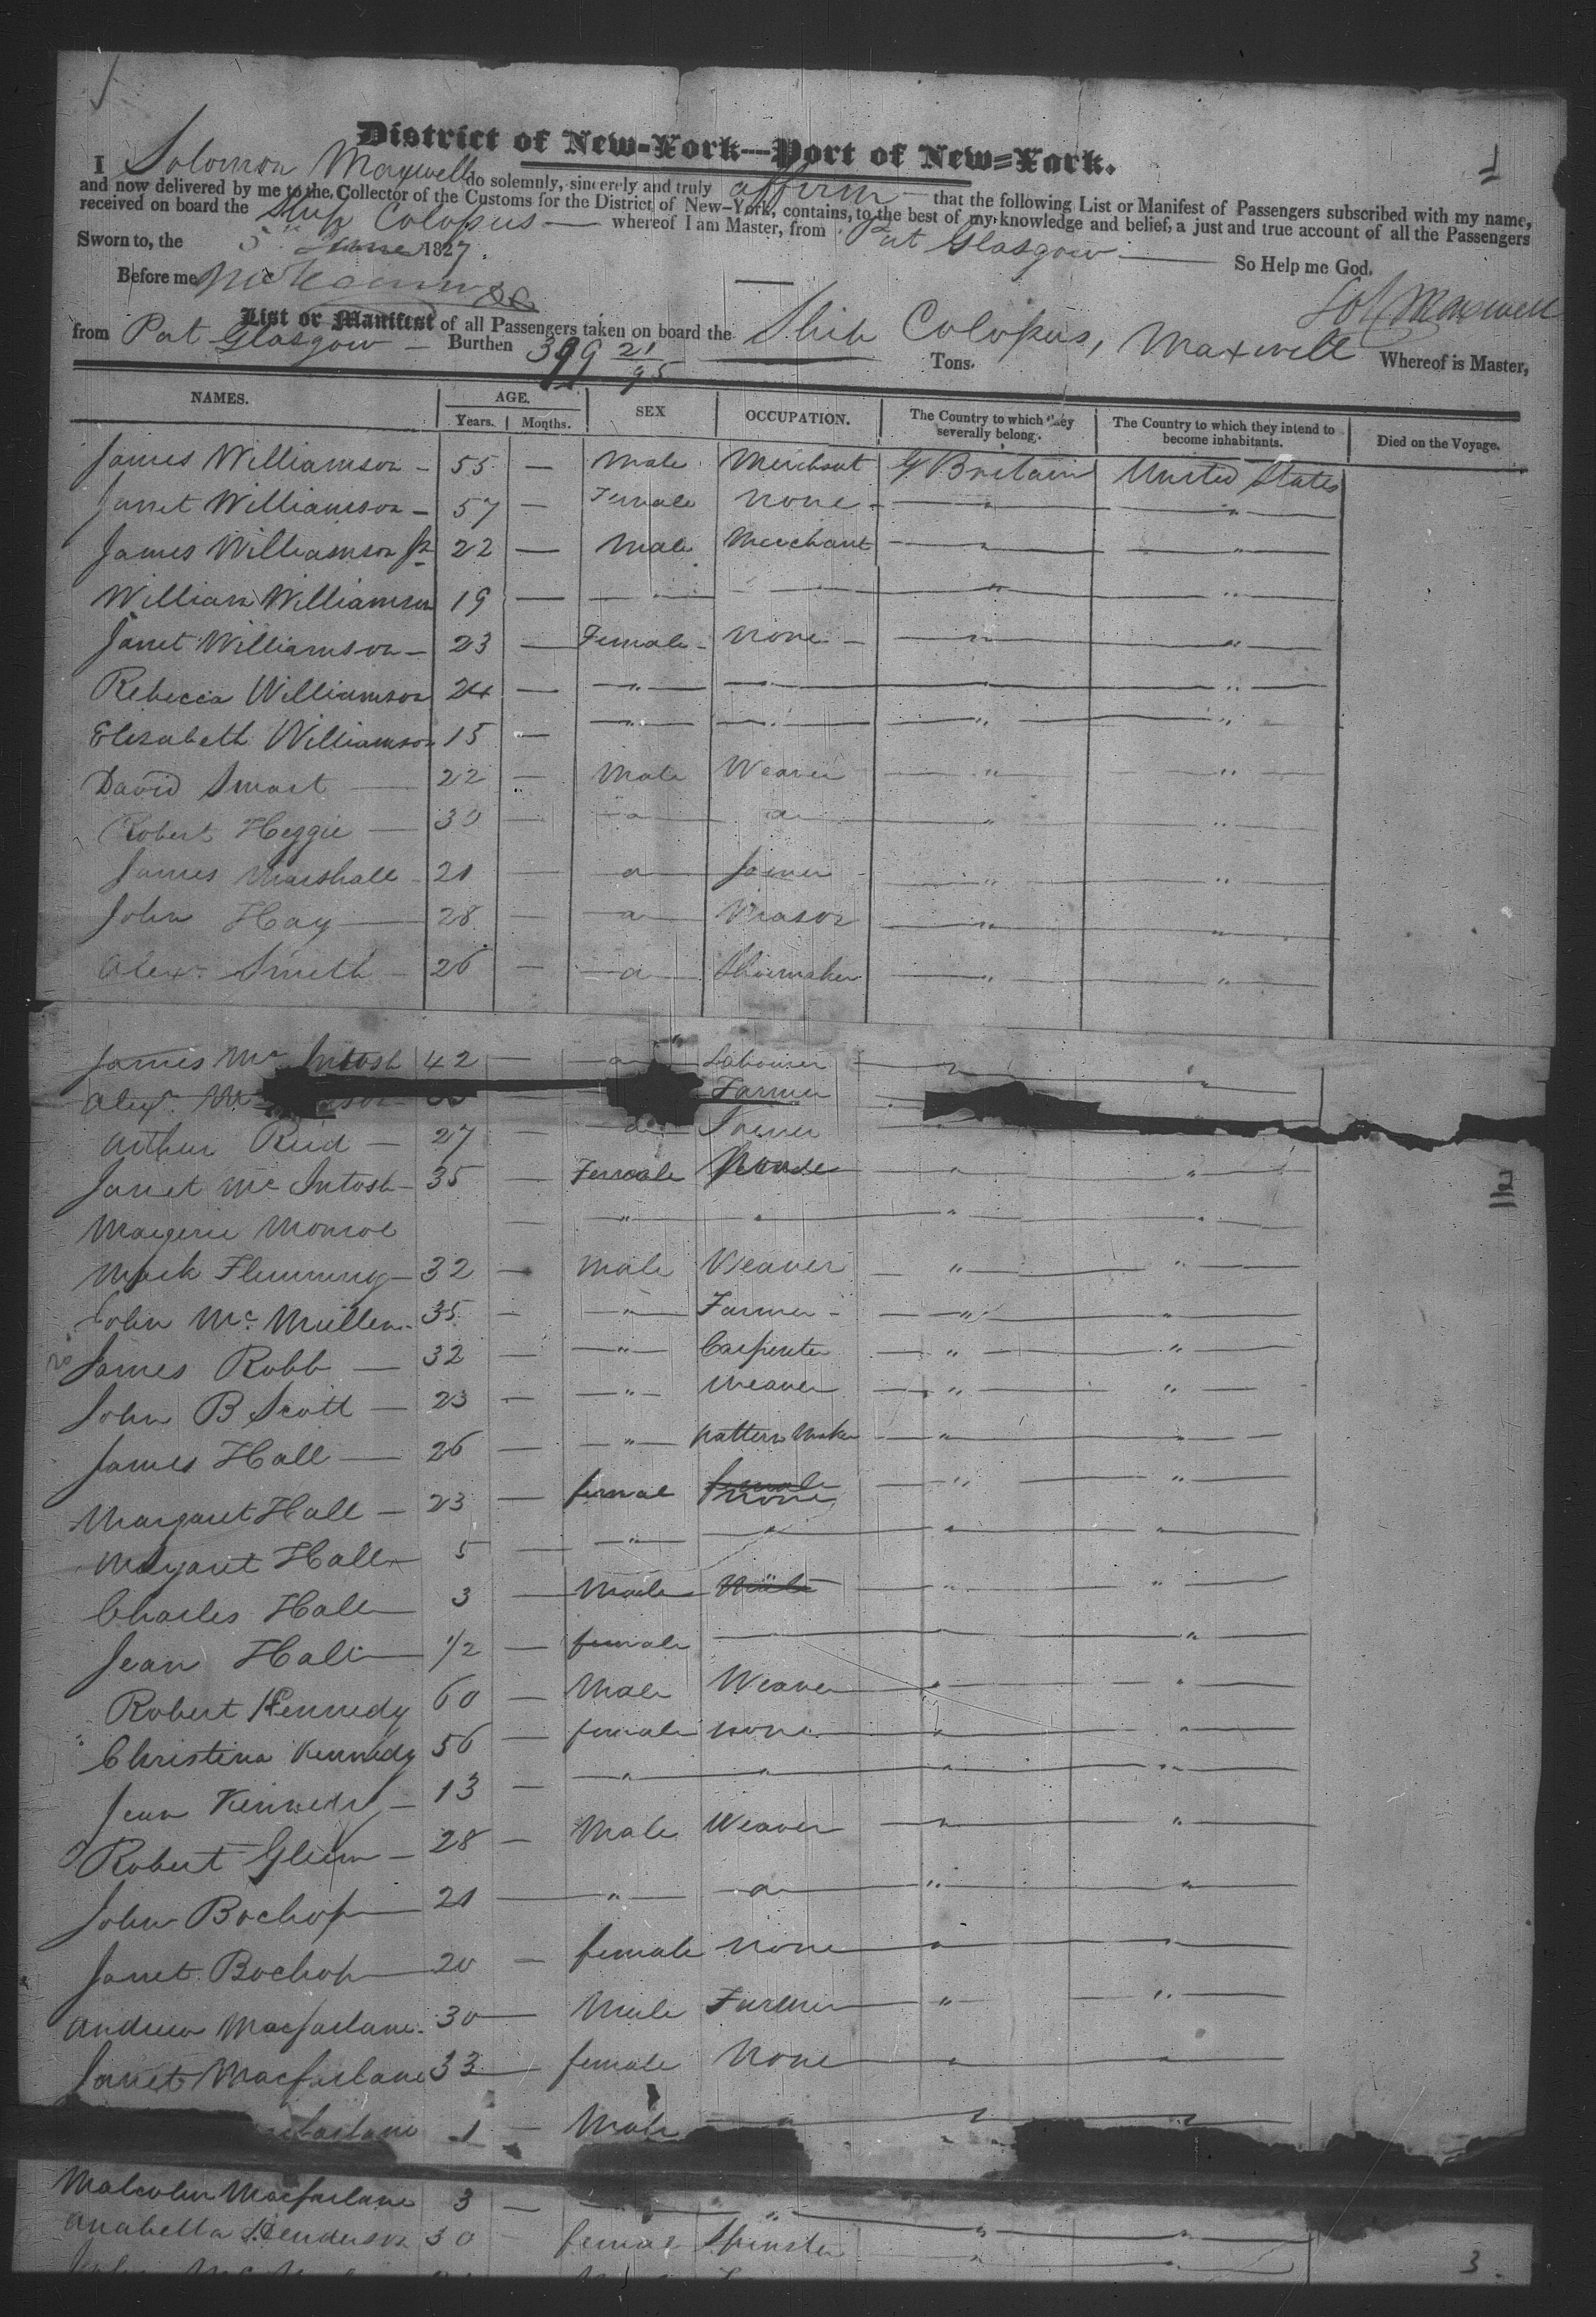 District of New-York—Port of New=York.
I Solomon Maxwell do solemnly, sincerely and truly affirm — that the following List or Manifest of Passengers subscribed with my name,
and now delivered by me to the Collector of the Customs for the District of New-York, contains, to the best of my knowledge and belief, a just and true account of all the Passengers
received on board the Ship Colossus — whereof I am Master, from Port Glasgow —
Sworn to, the 5th June 1827. So Help me God.
Before me
Sol Maxwell
List or Manifest of all Passengers taken on board the Ship Colossus, Maxwell Whereof is Master,
from Port Glasgow — Burthen 399 21/95 Tons.
NAMES. AGE. SEX OCCUPATION. The Country to which they severally belong. The Country to which they intend to become inhabitants. Died on the Voyage.
Years. Months.
James Williamson — 55 — Male Merchant G Britain United States
Janet Williamson — 57 — Female None — " "
James Williamson Jr 22 — Male Merchant — " "
William Williamson 19 — " " " "
Janet Williamson — 23 — Female — None — " "
Rebecca Williamson 24 — " " " "
Elizabeth Williamson 15 — " " " "
David Smart — 22 — Male Weaver " "
Robert Heggie — 30 — a a " "
James Marshall 21 — a Joiner " "
John Hay — 28 — a Mason " "
Alexr. Smith — 26 — a Shoemaker " "
James Mc Intosh 42 — a Labourer " "
Alexr. Mc Farmer
Arthur Reid — 27 — a Joiner
Janet Mc Intosh — 35 — Female " "
Margerie Monroe — " " " "
Mark Flemming — 32 — Male Weaver — " "
John Mc. Mullen 35 — " Farmer — " "
20 James Robb — 32 — " Carpenter " "
John B Scott — 23 — " Weaver " "
James Hall — 26 — " Pattern Maker " "
Margaret Hall — 23 — female female none " "
Margaret Hall 5 — " " " "
Charles Hall 3 — Male Male " "
Jean Hall 1/2 — female " "
Robert Kennedy 60 — Male Weaver " "
Christina Kennedy 56 — female none " "
Jean Kennedy — 13 — " " " "
Robert Glenn — 28 — Male Weaver " "
John Bochop 21 — " a " "
Janet Bochop 20 — female none " "
Andrew Macfarlane 30 — Male Farmer " "
Janet Macfarlane 33 — female None " "
farlane 1 — Male " " "
Malcolm Macfarlane 3 — " " "
Anabella Henderson 30 — female Spinster " "
3